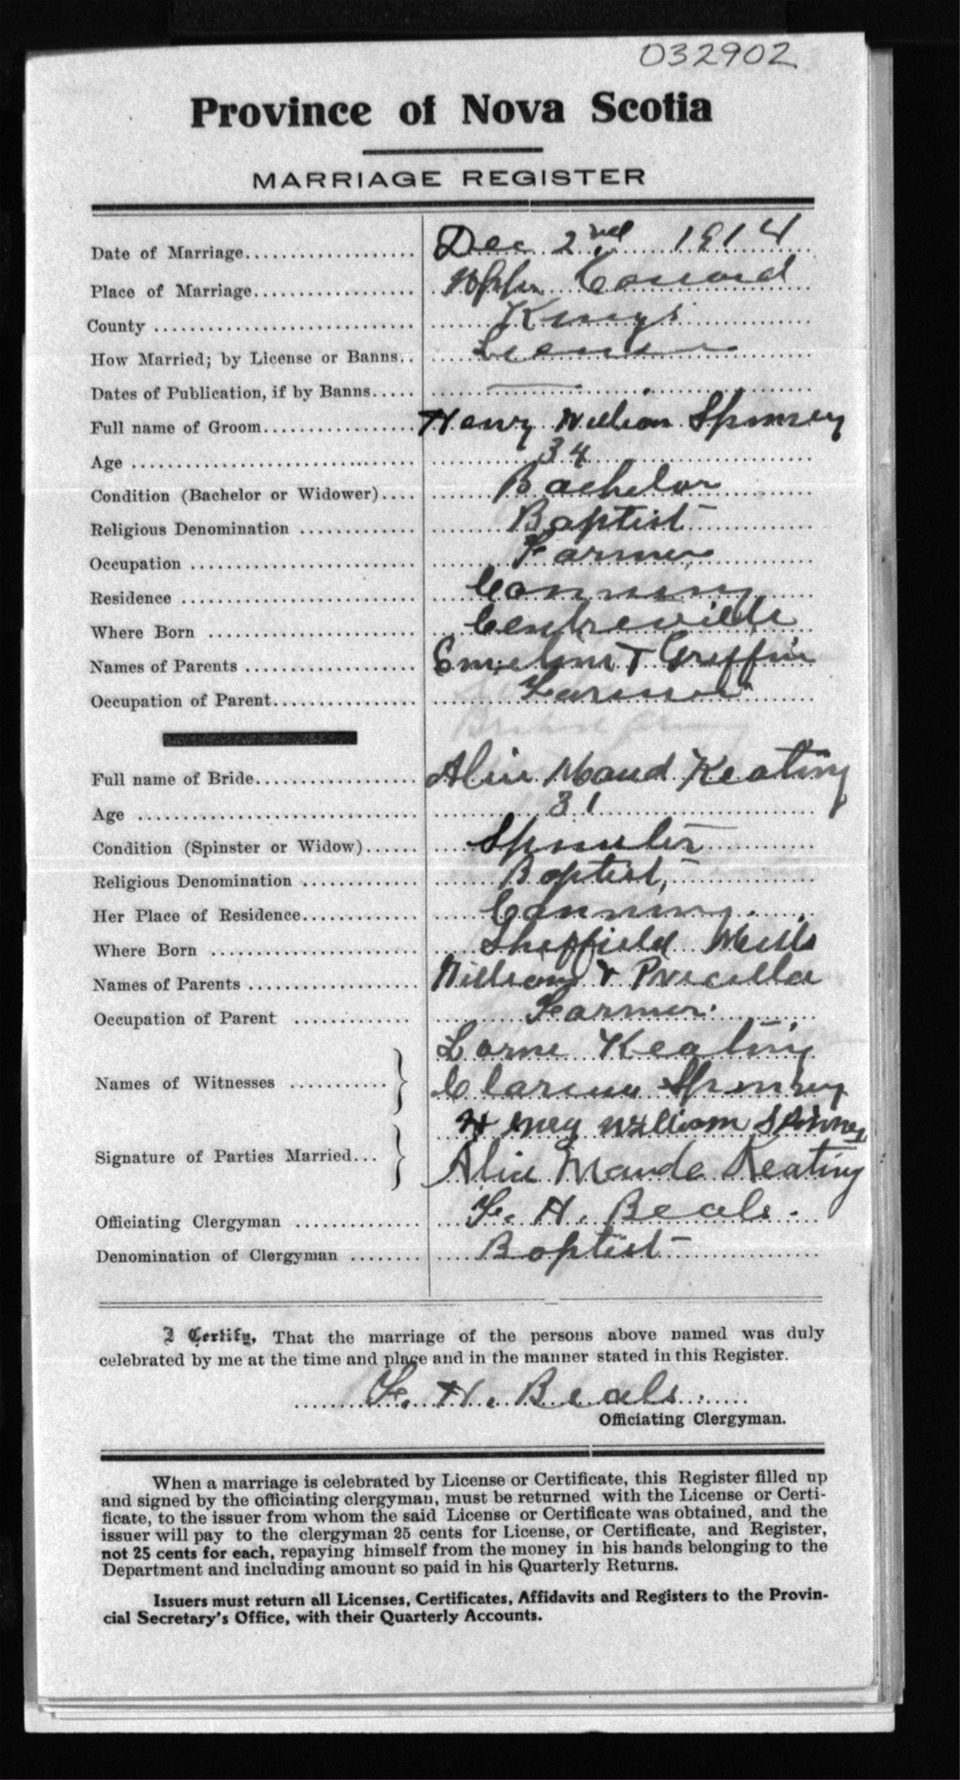 032902
Province of Nova Scotia
MARRIAGE REGISTER
Date of Marriage Dec 2nd 1914
Place of Marriage Upper Canard
County Kings
How Married; by License or Banns License
Dates of Publication, if by Banns —
Full name of Groom Henry William Spinney
Age 34
Condition (Bachelor or Widower) Bachelor
Religious Denomination Baptist
Occupation Farmer
Residence Canning
Where Born Centreville
Names of Parents & Griffin
Occupation of Parent Farmer
Full name of Bride Alice Maud Keating
Age 31
Condition (Spinster or Widow) Spinster
Religious Denomination Baptist,
Her Place of Residence Canning
Where Born Sheffield Mills
Names of Parents William & Precilla
Occupation of Parent Farmer
Lorne Keating
Names of Witnesses
Clarence Spinney
Henry William Spinney
Signature of Parties Married Alice Maude Keating
Officiating Clergyman F. H. Beals.
Denomination of Clergyman Baptist
I Certify, That the marriage of the persons above named was duly
celebrated by me at the time and place and in the manner stated in this Register.
F. H. Beals.
Officiating Clergyman.
When a marriage is celebrated by License or Certificate, this Register filled up
and signed by the officiating clergyman, must be returned with the License or Certi-
ficate, to the issuer from whom the said License or Certificate was obtained, and the
issuer will pay to the clergyman 25 cents for License, or Certificate, and Register,
not 25 cents for each, repaying himself from the money in his hands belonging to the
Department and including amount so paid in his Quarterly Returns.
Issuers must return all Licenses, Certificates, Affidavits and Registers to the Provin-
cial Secretary's Office, with their Quarterly Accounts.